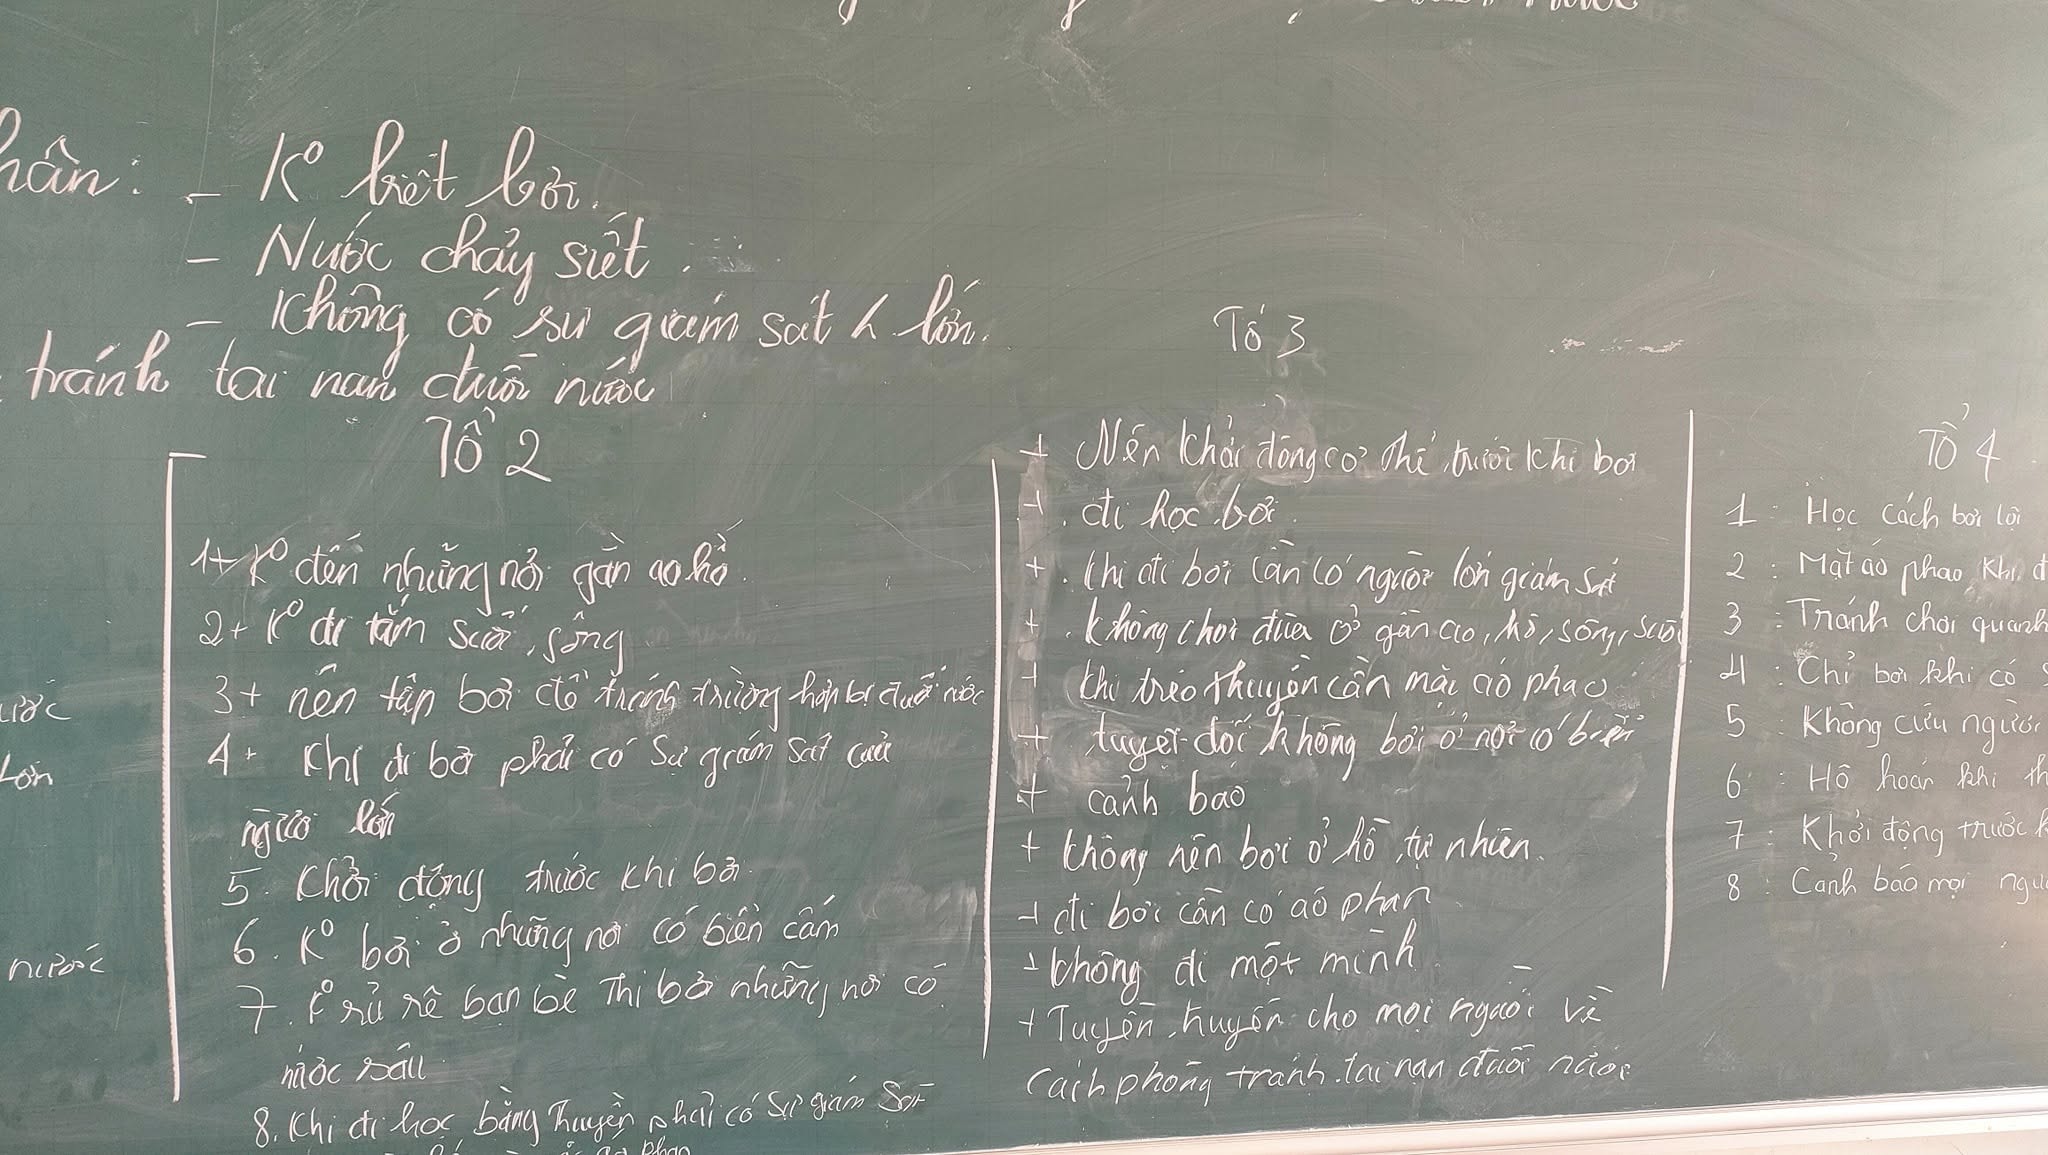 hân: - K° biết bơi.
- Nước chảy siết.
- Không có sự giám sát < lớn.
tránh tai nạn đuối nước
Tổ 2
1+ K° đến những nơi gần ao hồ.
2+ K° đi tắm suối, sông
3+ nên tập bơi để tránh trường hợp bị đuối nước
4+ Khi đi bơi phải có sự giám sát của
người lớn
5. Khởi động trước khi bơi.
6. K° bơi ở những nơi có biển cấm
7. K° rủ rê bạn bè Thi bơi những nơi có
nước sâu
8. Khi đi học bằng Thuyền phải có sự giám sát
áo phao
Tổ 3
+ Nên khởi động cơ thể trước khi bơi
+ đi học bơi.
+ khi đi bơi cần có người lớn giám sát
+ không chơi đùa ở gần ao, hồ, sông, suối
+ khi trèo thuyền cần mặc áo phao
+ tuyệt đối không bơi ở nơi có biển
+ cảnh bao
+ không nên bơi ở hồ tự nhiên.
+ đi bơi cần có áo phao
+ không đi một mình
+ Tuyên truyền cho mọi người về
cách phòng tránh tai nạn đuối nước
Tổ 4
1 : Học cách bơi lội
2 : Mặt áo phao khi đ
3 : Tránh chơi quanh
4 : Chỉ bơi khi có s
5 : Không cứu người
6 : Hô hoán khi th
7 : Khởi động trước k
8 : Cảnh báo mọi ngư
ước
Lớn
nước